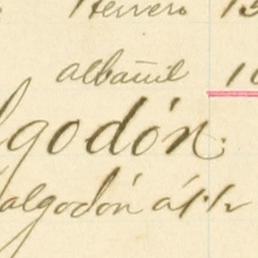 Herrero 15
albañil 10
lgodón.
algodón á 1½